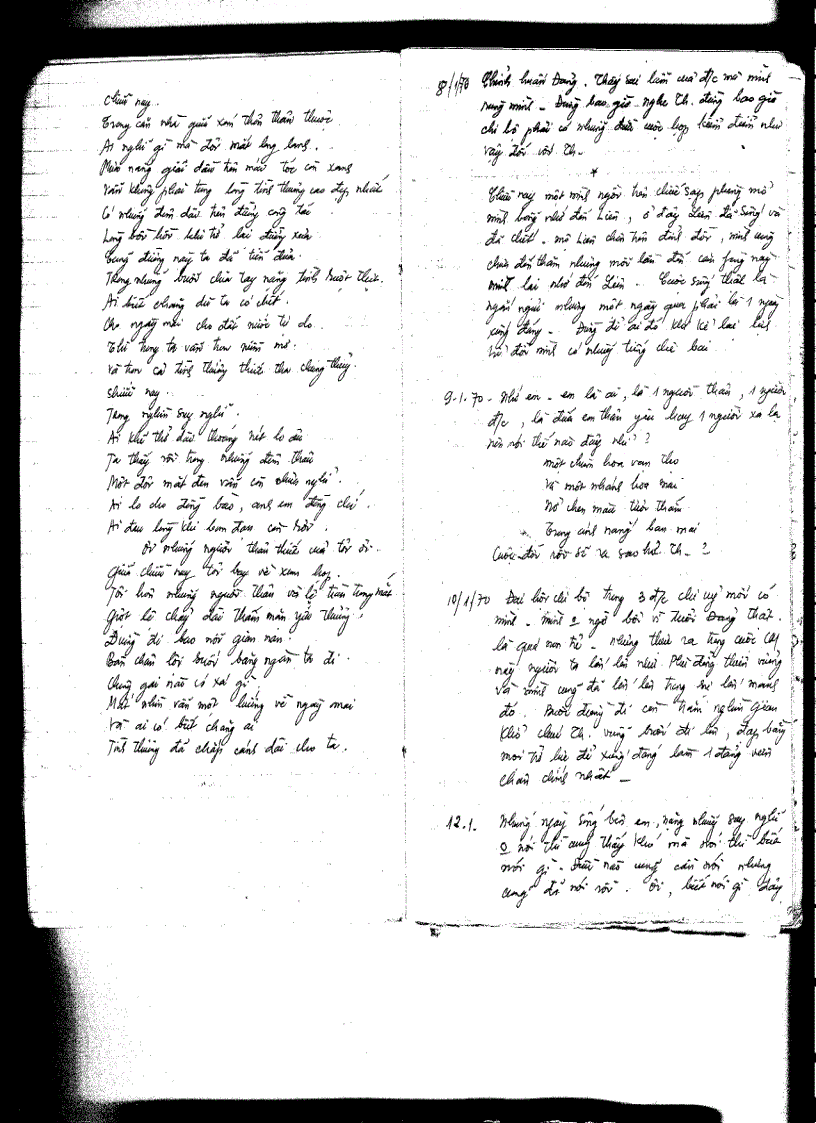 Chiều nay.
Trong căn nhà giữa xóm thôn thân thuộc
Ai nghĩ gì mà đôi mắt long lanh.
Mưa nắng giãi dầu trên mái tóc còn xanh
Vẫn không phai trong lòng tình thương cao đẹp nhất
Có những đêm dài trên đường công tác
Lòng bồi hồi khi trở lại đường xưa
Cung đường này ta đã tiễn đưa
Trong những buổi chia tay nặng tình ruột thịt.
Ai biết chăng dù ta có chết.
Cho ngày mai cho đất nước tự do.
Thì trong ta vẫn trọn niềm mơ.
Và trọn cả tình thương thiết tha chung thủy.
Chiều nay.
Trong nghìn suy nghĩ.
Ai khẽ thở dài thoáng nét lo âu
Ta thấy rồi trong những đêm thâu
Một đôi mắt đen vẫn còn chưa nghỉ.
Ai lo cho đồng bào, anh em đồng chí.
Ai đau lòng khi bom đạn còn rơi.
Ơi những người thân thiết của tôi ơi.
Giữa chiều nay tôi bay về xum họp.
Tôi hôn những người thân và lệ tràn trong mắt
Giọt lệ chảy dài thấm mặn yêu thương.
Đường đi bao nỗi gian nan.
Bàn chân lội suối băng ngàn ta đi.
Chông gai nào có xá gì.
Mắt nhìn vẫn một hướng về ngày mai
Và ai có biết chăng ai
Tình thương đã chắp cánh dài cho ta.
8/1/70 Chỉnh huấn Đảng. Thấy sai lầm của đ/c mà mình
rùng mình - Đừng bao giờ nghe Th. đừng bao giờ
chi bộ phải có những cuộc họp kiểm điểm như
vậy đối với Th.
*
Chiều nay một mình ngồi trên chiếc sạp phòng mổ
mình bỗng nhớ đến Liên, ở đây Liên đã sống và
đã chết. mộ Liên chôn trên đỉnh đồi, mình cũng
chưa đến thăm nhưng mỗi lần đến căn phòng này
mình lại nhớ đến Liên. Cuộc sống thật là
ngắn ngủi nhưng một ngày qua phải là 1 ngày
xứng đáng - Đừng để ai đó khi kể lại lịch
sử đời mình có những tiếng chê bai
9-1-70 - Nhớ em - em là ai, là 1 người thân, 1 người
đ/c, là đứa em thân yêu hay 1 người xa lạ
nên nói thế nào đây nhỉ?
một chùm hoa vạn thọ
Và một nhánh hoa mai
Nở chen màu tươi thắm
Trong ánh nắng ban mai
Cuộc đời rồi sẽ ra sao hở Th. ?
10/1/70 Đại hội chi bộ trong 3 đ/c chi uỷ mới có
mình. mình o ngờ bởi vì tuổi Đảng thật
là quá non trẻ. Nhưng thực ra trong cuộc CM
này người ta lớn lên như Phù đổng thiên vương
và mình cũng đã lớn lên trong sự lớn mạnh
đó. Bước đường đi còn trăm nghìn gian
khổ chưa Th. vững bước đi lên, đạp bằng
mọi trở lực để xứng đáng làm 1 đảng viên
chân chính nhất -
12.1. Những ngày sống bên em, nặng những suy nghĩ
o nói thì cũng thấy khó mà nói thì biết
nói gì - Điều nào cũng cần nói nhưng
cũng đã nói rồi. Ôi, biết nói gì đây